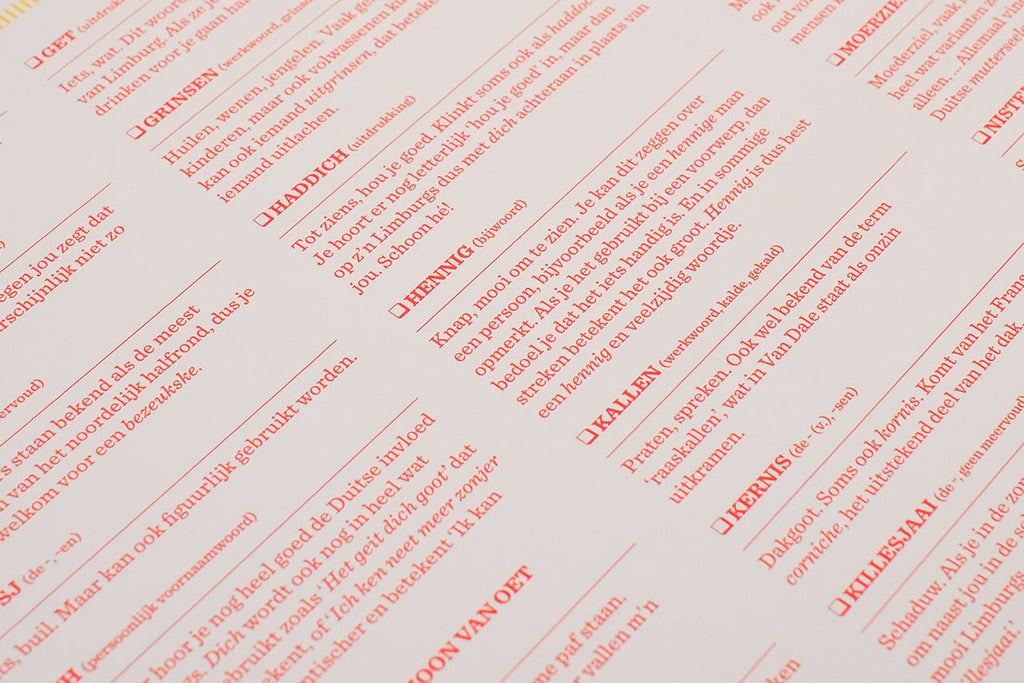 GET (uitdrukk
Iets, wat. Dit woor
van Limburg. Als ze je
drinken voor je gaan ha
GRINSEN (werkwoord, grinsd
Huilen, wenen, jengelen. Vaak ge
kinderen, maar ook volwassenen ku
kan ook iemand uitgrinsen, dat beteke
iemand uitlachen.
HADDICH (uitdrukking)
Tot ziens, hou je goed. Klinkt soms ook als haddoe
Je hoort er nog letterlijk ‘hou je goed’ in, maar dan
op z’n Limburgs dus met dich achteraan in plaats van
jou. Schoon hé!
HENNIG (bijwoord)
Knap, mooi om te zien. Je kan dit zeggen over
een persoon, bijvoorbeeld als je een hennige man
opmerkt. Als je het gebruikt bij een voorwerp, dan
bedoel je dat het iets handig is. En in sommige
streken betekent het ook groot. Hennig is dus best
een hennig en veelzijdig woordje.
KALLEN (werkwoord, kalde, gekald)
Praten, spreken. Ook wel bekend van de term
‘raaskallen’, wat in Van Dale staat als onzin
uitkramen.
KERNIS (de - (v), -sen)
Dakgoot. Soms ook kornis. Komt van het Frans
corniche, het uitstekend deel van het dak
KILLESJAAI (de -, geen meervoud)
Schaduw. Als je in de zo
om naast jou in de sc
mooi Limburgs
llesjaai.’
MOERZIE
Moerziel, vaak
heel wat varianten zo
alleen, ... Allemaal vi
Duitse mutterseele
NISTE
ook
oud vol
mensen k
egen jou zegt dat
rschijnlijk niet zo
ervoud)
s staan bekend als de meest
n van het noordelijk halfrond, dus je
welkom voor een bezeukske.
SJ (de -, -en)
s, buil. Maar kan ook figuurlijk gebruikt worden.
H (persoonlijk voornaamwoord)
hoor je nog heel goed de Duitse invloed
s. Dich wordt ook nog in heel wat
ebruikt zoals ‘Het geit dich goot’ dat
ekent, of ‘Ich ken neet meer zonjer
ntischer en betekent ‘Ik kan
OON VAN OET
me paf staan.
r vallen m’n